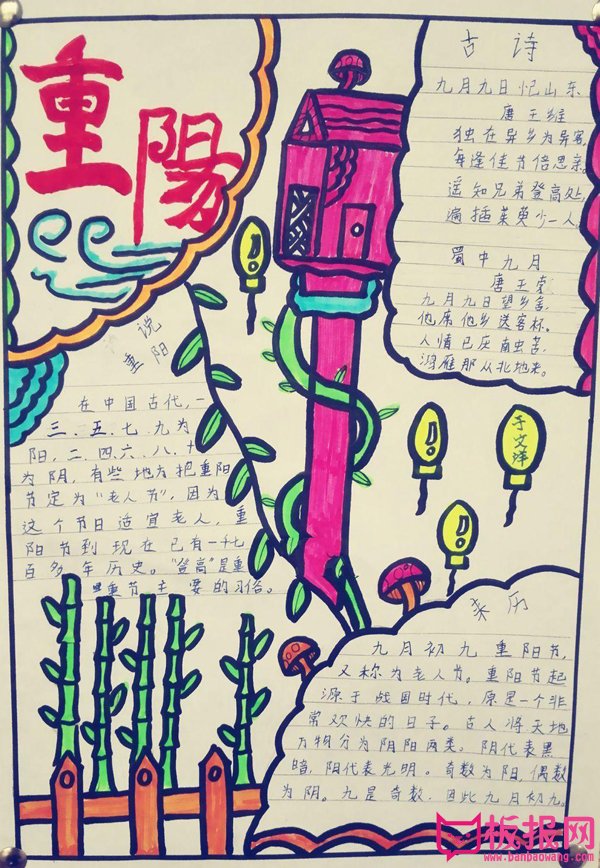 重陽
古诗
九月九日忆山东
唐王维
独在异乡为异客,
每逢佳节倍思亲。
遥知兄弟登高处,
遍插茱萸少一人。
蜀中九月
唐王
九月九日望乡
他席他乡送客杯。
人情已厌南虫苦,
鸿雁那从北地来。
说
重阳
在中国古代,一
三.五.七.九为
阳,二.四.六.八.十
为阴,有些地方把重阳
节定为“老人节”,因为
这个节日适宜老人,重
阳节到现在已有一千七
百多年历史。“登高”是重
重节主要的习俗。
于文洋
来历
九月初九重阳节,
又称为老人节。重阳节起
源于战国时代,原是一个非
常欢快的日子。古人将天地
万物分为阴阳两类。阴代表黑
暗,阳代表光明。奇数为阳,偶数
为阴。九是奇数,因此九月初九。
板报网
www.banbaowang.com